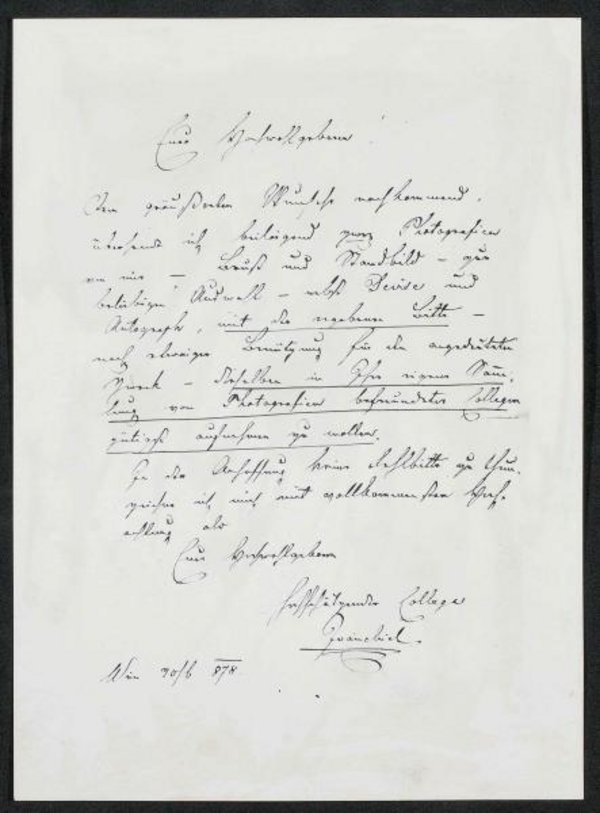 Euer Hochwohlgeboren!
Dem geäußerten Wunsche nachkommend,
übersende ich beiliegend zwei Photografien
von mir — Brust und Standbild — zur
beliebigen Auswahl — nebst Devise und
Autograph, mit der ergebenen Bitte —
nach etwaiger Benützung für den angedeuteten
Zweck — dieselben in Ihre eigene Samm-
lung von Photografien befreundeter Collegen
gütigst aufnehmen zu wollen.
In der Anhoffnung keine Fehlbitte zu thun,
zeichne ich mich mit vollkommenster Hoch-
achtung als
Euer Hochwohlgeboren
hochschätzender College
Wien 20/6 878